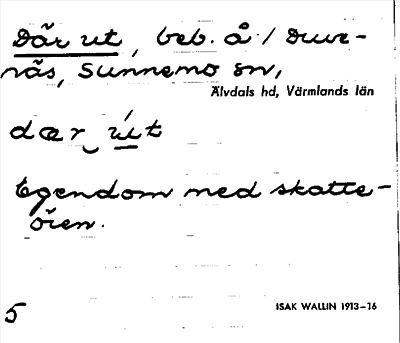 Där ut, beb. å / Duve-
näs, Sunnemo sn,
Älvdals hd, Värmlands län
dær út
Egendom med skatte-
ören.
5
ISAK WALLIN 1913–16